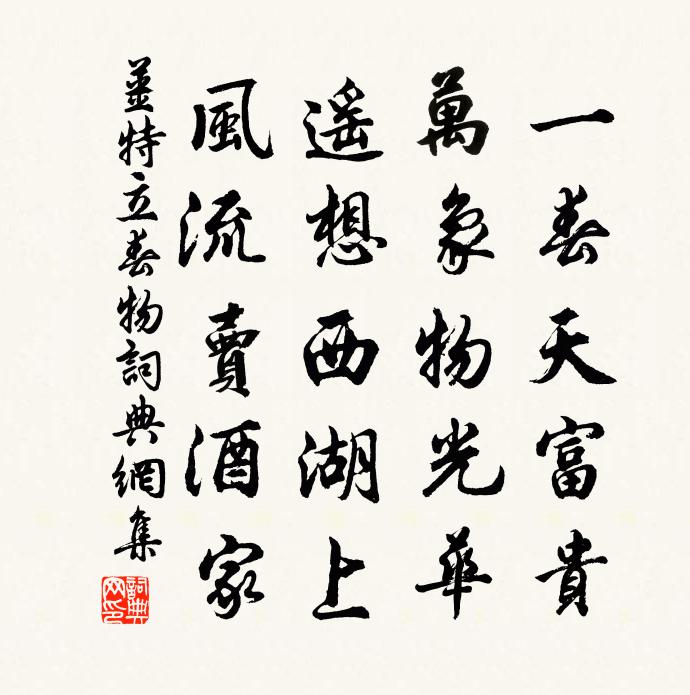 一春天富貴
萬象物光華
遥想西湖上
風流賣酒家
姜特立春物詞典網集
詞典網印